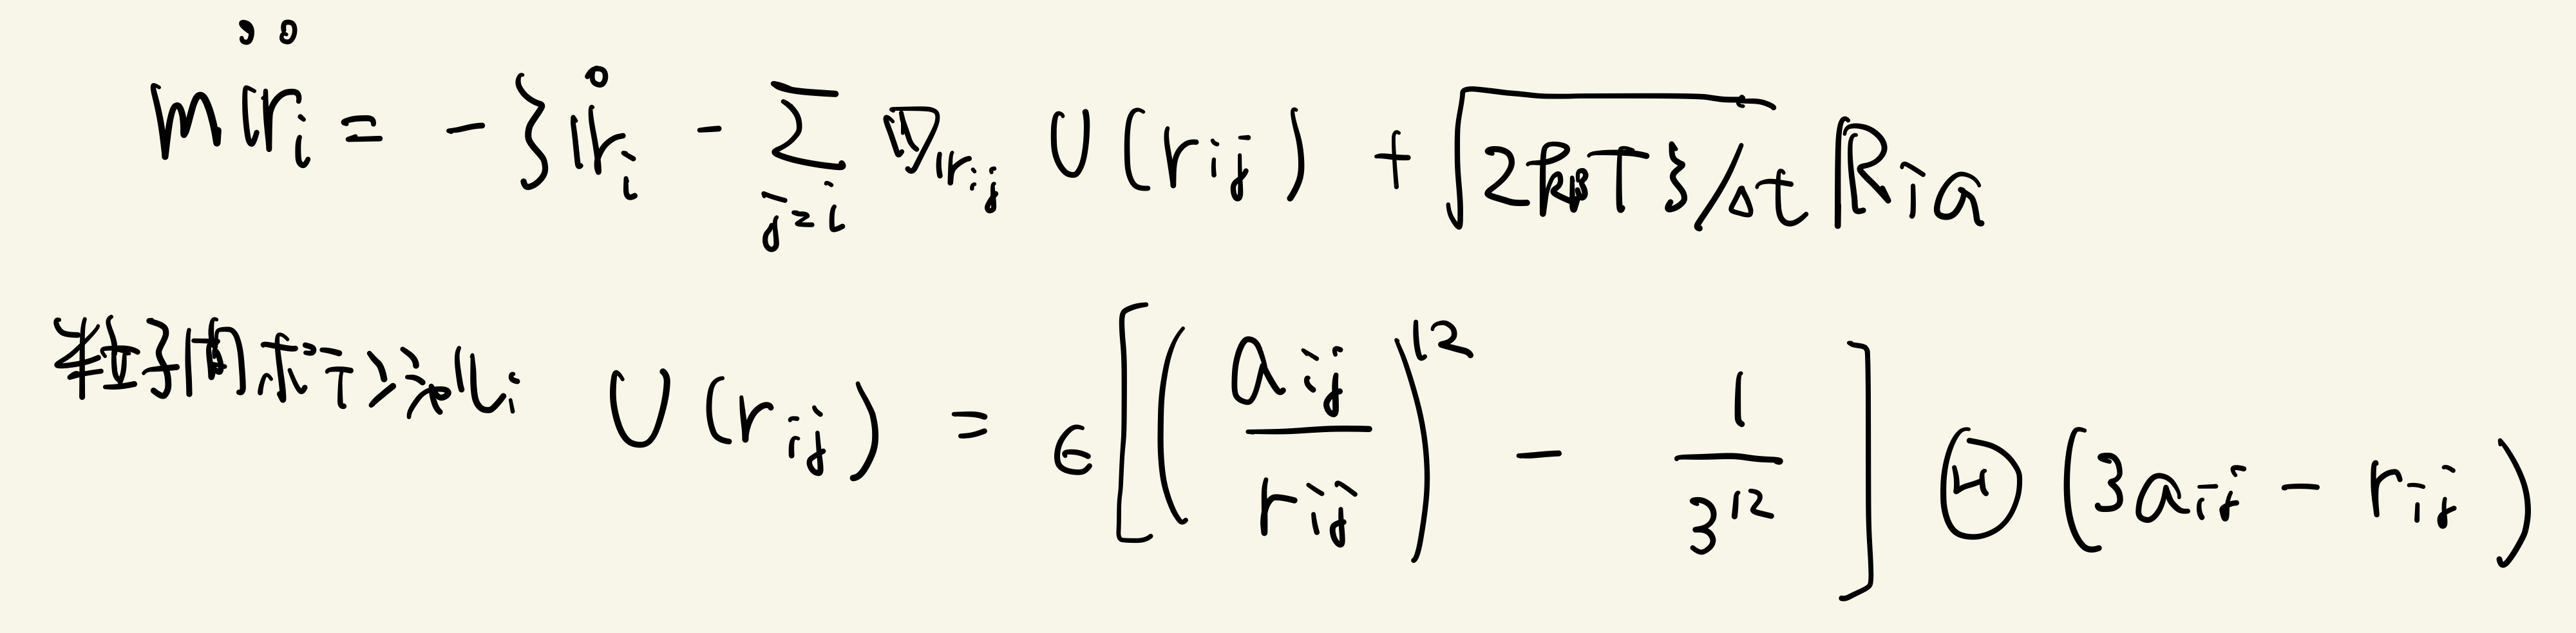 m𝕣̈ᵢ = -ζ𝕣̇ᵢ - Σ_{j=i} ∇_{𝕣ᵢⱼ} U(rᵢⱼ) + √(2k_BTζ/Δt) ℝ_{ia}
粒子間ポテンシャル U(r_{ij}) = ε[(a_{ij}/r_{ij})^{12} - 1/3^{12}] Θ(3a_{ij} - r_{ij})